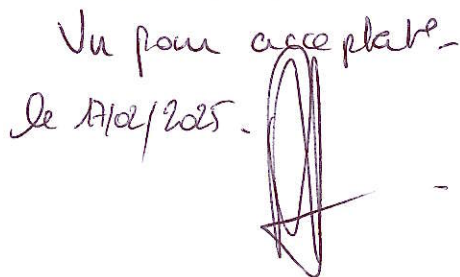 Vu pour acceptat°-
le 17/02/2025.